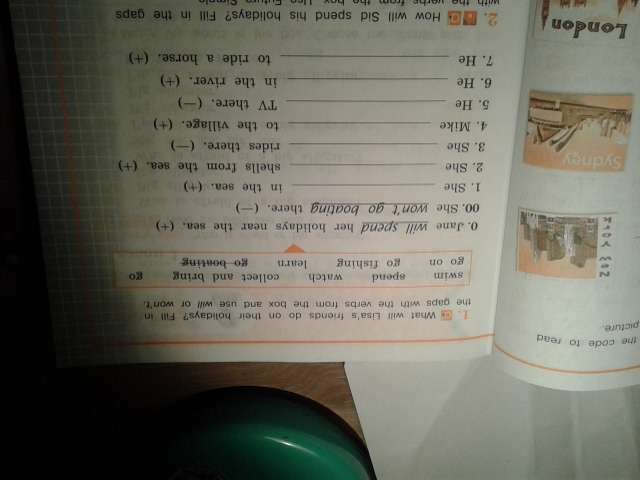 the code to read
picture.
New York
Sydney
London
1. What will Lisa's friends do on their holidays? Fill in
the gaps with the verbs from the box and use will or won't.
swim spend watch collect and bring go
go on go fishing learn go boating
0. Jane will spend her holidays near the sea. (+)
00. She won't go boating there. (—)
1. She in the sea. (+)
2. She shells from the sea. (+)
3. She rides there. (—)
4. Mike to the village. (+)
5. He TV there. (—)
6. He in the river. (+)
7. He to ride a horse. (+)
2. How will Sid spend his holidays? Fill in the gaps
with the verbs from the box. Use Future Simple.